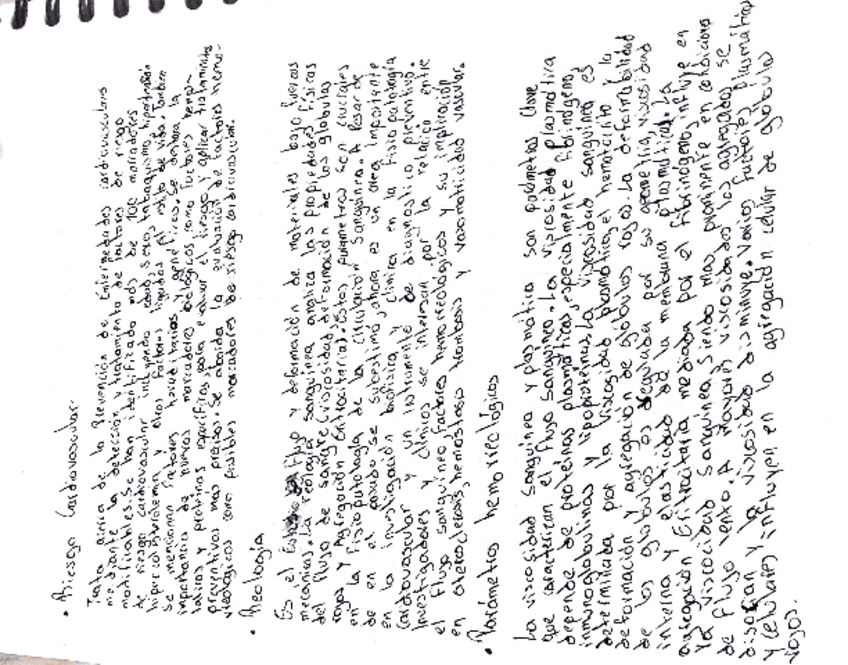 • Riesgo Cardiovascular.
Trata acerca de la Prevención de Enfermedades cardiovasculares
mediante la detección y tratamiento de factores de riesgo
modificables. Se han identificado más de 100 marcadores
de riesgo cardiovascular incluyendo edad, sexo, tabaquismo, hipertensión
hipercolesterolemia y otros factores ligados al estilo de vida. también
se mencionan factores hereditarios y genéticos. Se destaca la
importancia de nuevos marcadores biológicos como factores hemos-
táticos y proteínas específicas, para evaluar el riesgo y aplicar tratamientos
preventivos más precisos. Se aborda la evaluación de factores hemo-
reológicos como posibles marcadores de riesgo cardiovascular.
• Reología
Es el flujo y deformación de materiales bajo fuerzas
mecánicas. La reología sanguínea analiza las propiedades físicas
del flujo de sangre (viscosidad, deformación de los glóbulos
rojos y Agregación Eritrocitaria). Estos parámetros son cruciales
en la fisiopatología de la circulación sanguínea. A Pesar de
de en el pasado se subestimó, ahora es un área importante
en la investigación biofísica y clínica en la fisiopatología
Cardiovascular y un instrumento de diagnóstico preventivo.
Investigadores y clínicos se interesan por la relación entre
el flujo sanguíneo, factores hemoreológicos y su implicación
en aterosclerosis, hemostasia trombosis y vasomotricidad vascular.
• Parámetros hemorreológicos
La viscosidad Sanguínea y plasmática son parámetros clave
que caracterizan el flujo Sanguíneo. La viscosidad plasmática
depende de proteínas plasmáticas, especialmente fibrinógeno,
inmunoglobulinas y lipoproteínas, la viscosidad sanguínea es
determinada por la viscosidad plasmática, el hematocrito y la
deformación y agregación de glóbulos rojos. La deformabilidad
de los glóbulos es regulada por su geometría, viscosidad
interna y elasticidad de la membrana plasmática. La
agregación Eritrocitaria mediada por el fibrinógeno, influye en
la viscocidad sanguínea, Siendo más prominente en condiciones
de flujo lento. A mayores viscosidades los agregados se
disocian y la viscosidad disminuye. Varios factores plasmáticos
y celulares influyen en la agregación celular de glóbulos
rojos.